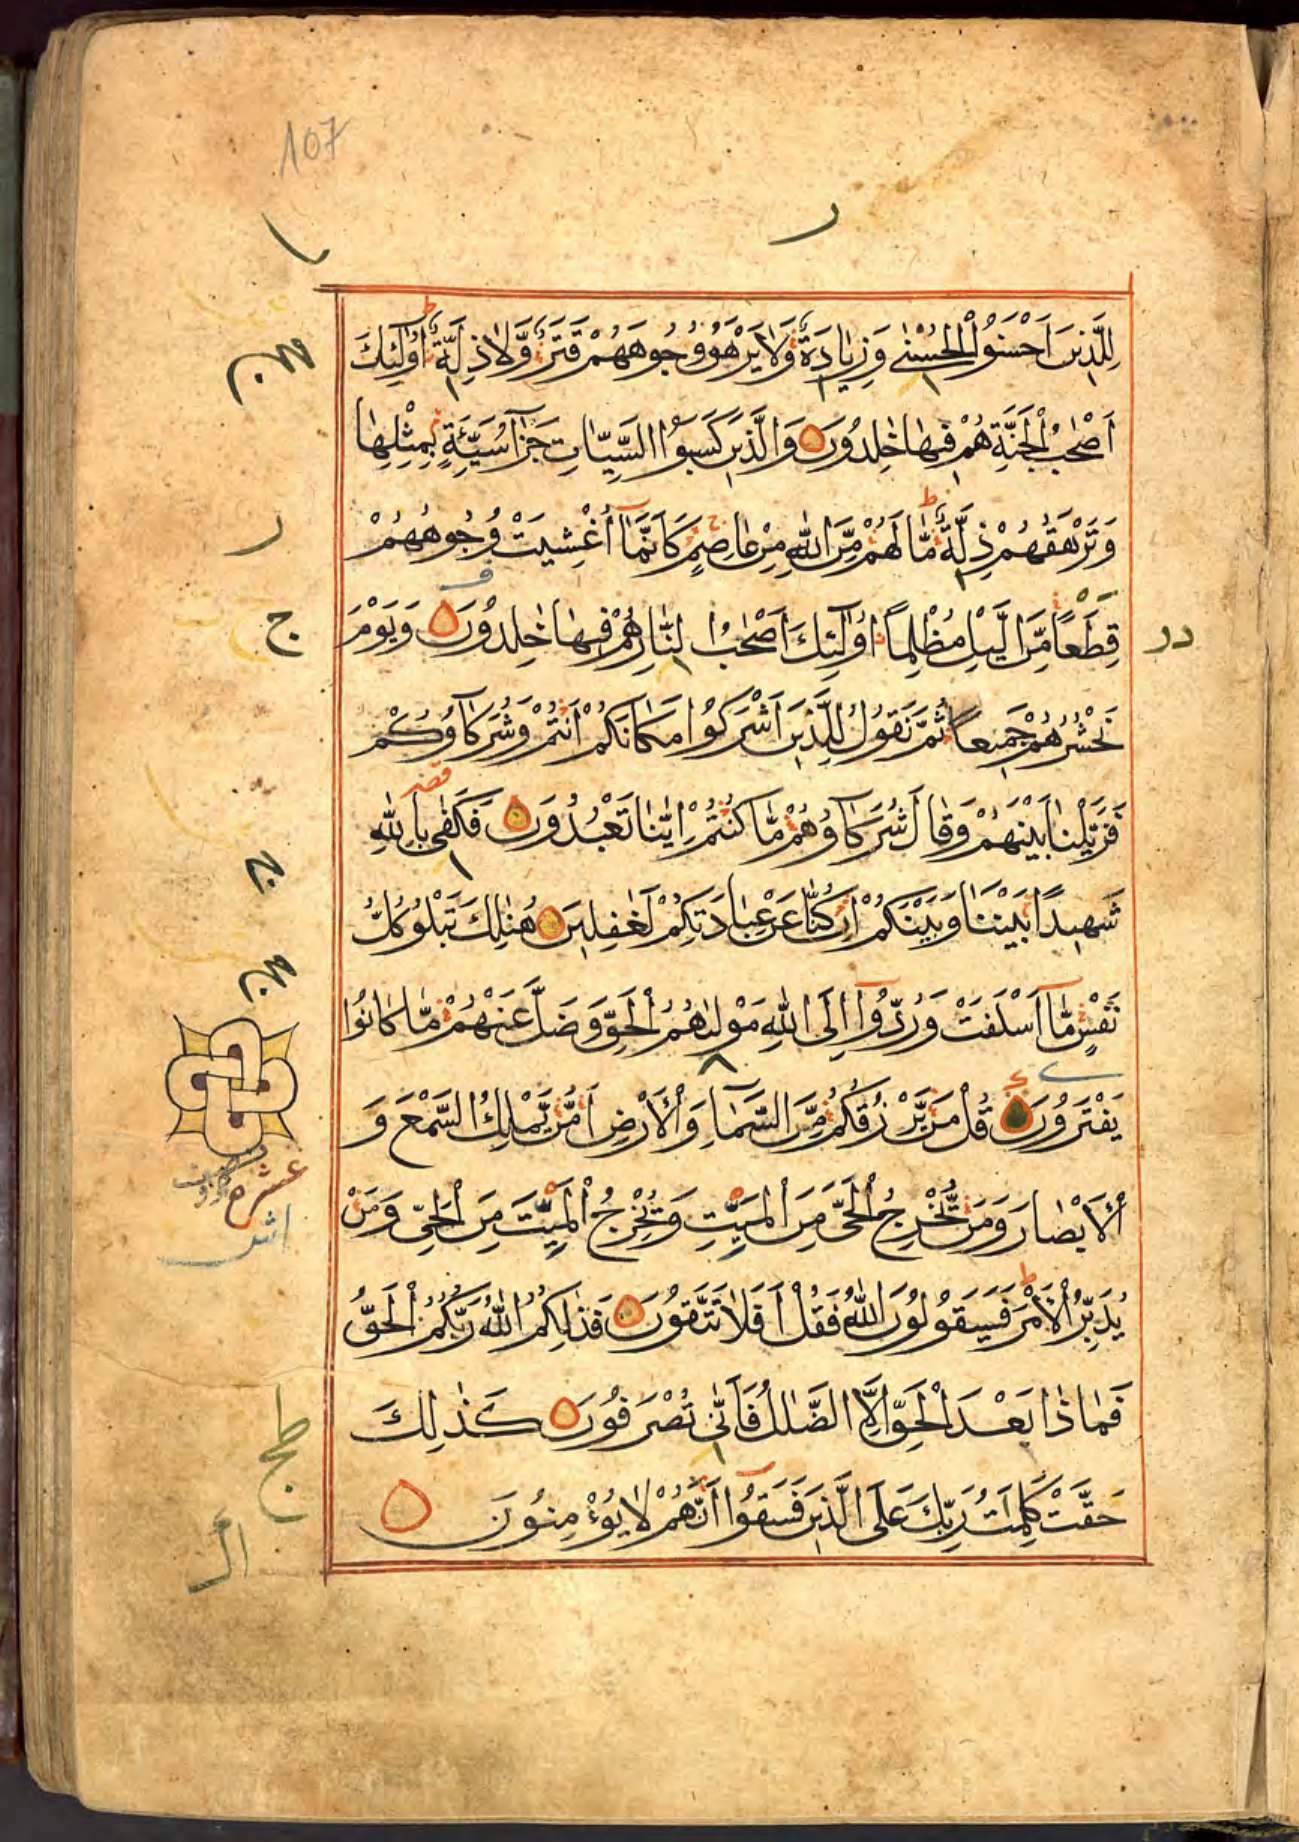 107
لِلَّذِينَ اَحْسَنُوا الْحُسْنٰى وَزِيَادَةٌ وَلَا يَرْهَقُ وُجُوهَهُمْ قَتَرٌ وَّلَا ذِلَّةٌ اُولٰٓئِكَ
اَصْحٰبُ الْجَنَّةِ هُمْ فِيهَا خٰلِدُونَ وَالَّذِينَ كَسَبُوا السَّيِّاٰتِ جَزَآءُ سَيِّئَةٍ بِمِثْلِهَا
وَتَرْهَقُهُمْ ذِلَّةٌ مَّا لَهُمْ مِّنَ اللّٰهِ مِنْ عَاصِمٍ كَاَنَّمَآ اُغْشِيَتْ وُجُوهُهُمْ
قِطَعًا مِّنَ الَّيْلِ مُظْلِمًا اُولٰٓئِكَ اَصْحٰبُ النَّارِ هُمْ فِيهَا خٰلِدُونَ وَيَوْمَ
نَحْشُرُهُمْ جَمِيعًا ثُمَّ نَقُولُ لِلَّذِينَ اَشْرَكُوا مَكَانَكُمْ اَنْتُمْ وَشُرَكَآؤُكُمْ
فَزَيَّلْنَا بَيْنَهُمْ وَقَالَ شُرَكَآؤُهُمْ مَّا كُنْتُمْ اِيَّانَا تَعْبُدُونَ فَكَفٰى بِاللّٰهِ
شَهِيدًا بَيْنَنَا وَبَيْنَكُمْ اِنْ كُنَّا عَنْ عِبَادَتِكُمْ لَغٰفِلِينَ هُنَالِكَ تَبْلُو كُلُّ
نَفْسٍ مَّآ اَسْلَفَتْ وَرُدُّوٓا اِلَى اللّٰهِ مَوْلٰىهُمُ الْحَقِّ وَضَلَّ عَنْهُمْ مَّا كَانُوا
يَفْتَرُونَ قُلْ مَنْ يَّرْزُقُكُمْ مِّنَ السَّمَآءِ وَالْاَرْضِ اَمَّنْ يَّمْلِكُ السَّمْعَ وَ
الْاَبْصَارَ وَمَنْ يُّخْرِجُ الْحَىَّ مِنَ الْمَيِّتِ وَيُخْرِجُ الْمَيِّتَ مِنَ الْحَىِّ وَمَنْ
يُدَبِّرُ الْاَمْرَ فَسَيَقُولُونَ اللّٰهُ فَقُلْ اَفَلَا تَتَّقُونَ فَذٰلِكُمُ اللّٰهُ رَبُّكُمُ الْحَقُّ
فَمَاذَا بَعْدَ الْحَقِّ اِلَّا الضَّلٰلُ فَاَنّٰى تُصْرَفُونَ كَذٰلِكَ
حَقَّتْ كَلِمَتُ رَبِّكَ عَلَى الَّذِينَ فَسَقُوٓا اَنَّهُمْ لَا يُؤْمِنُونَ